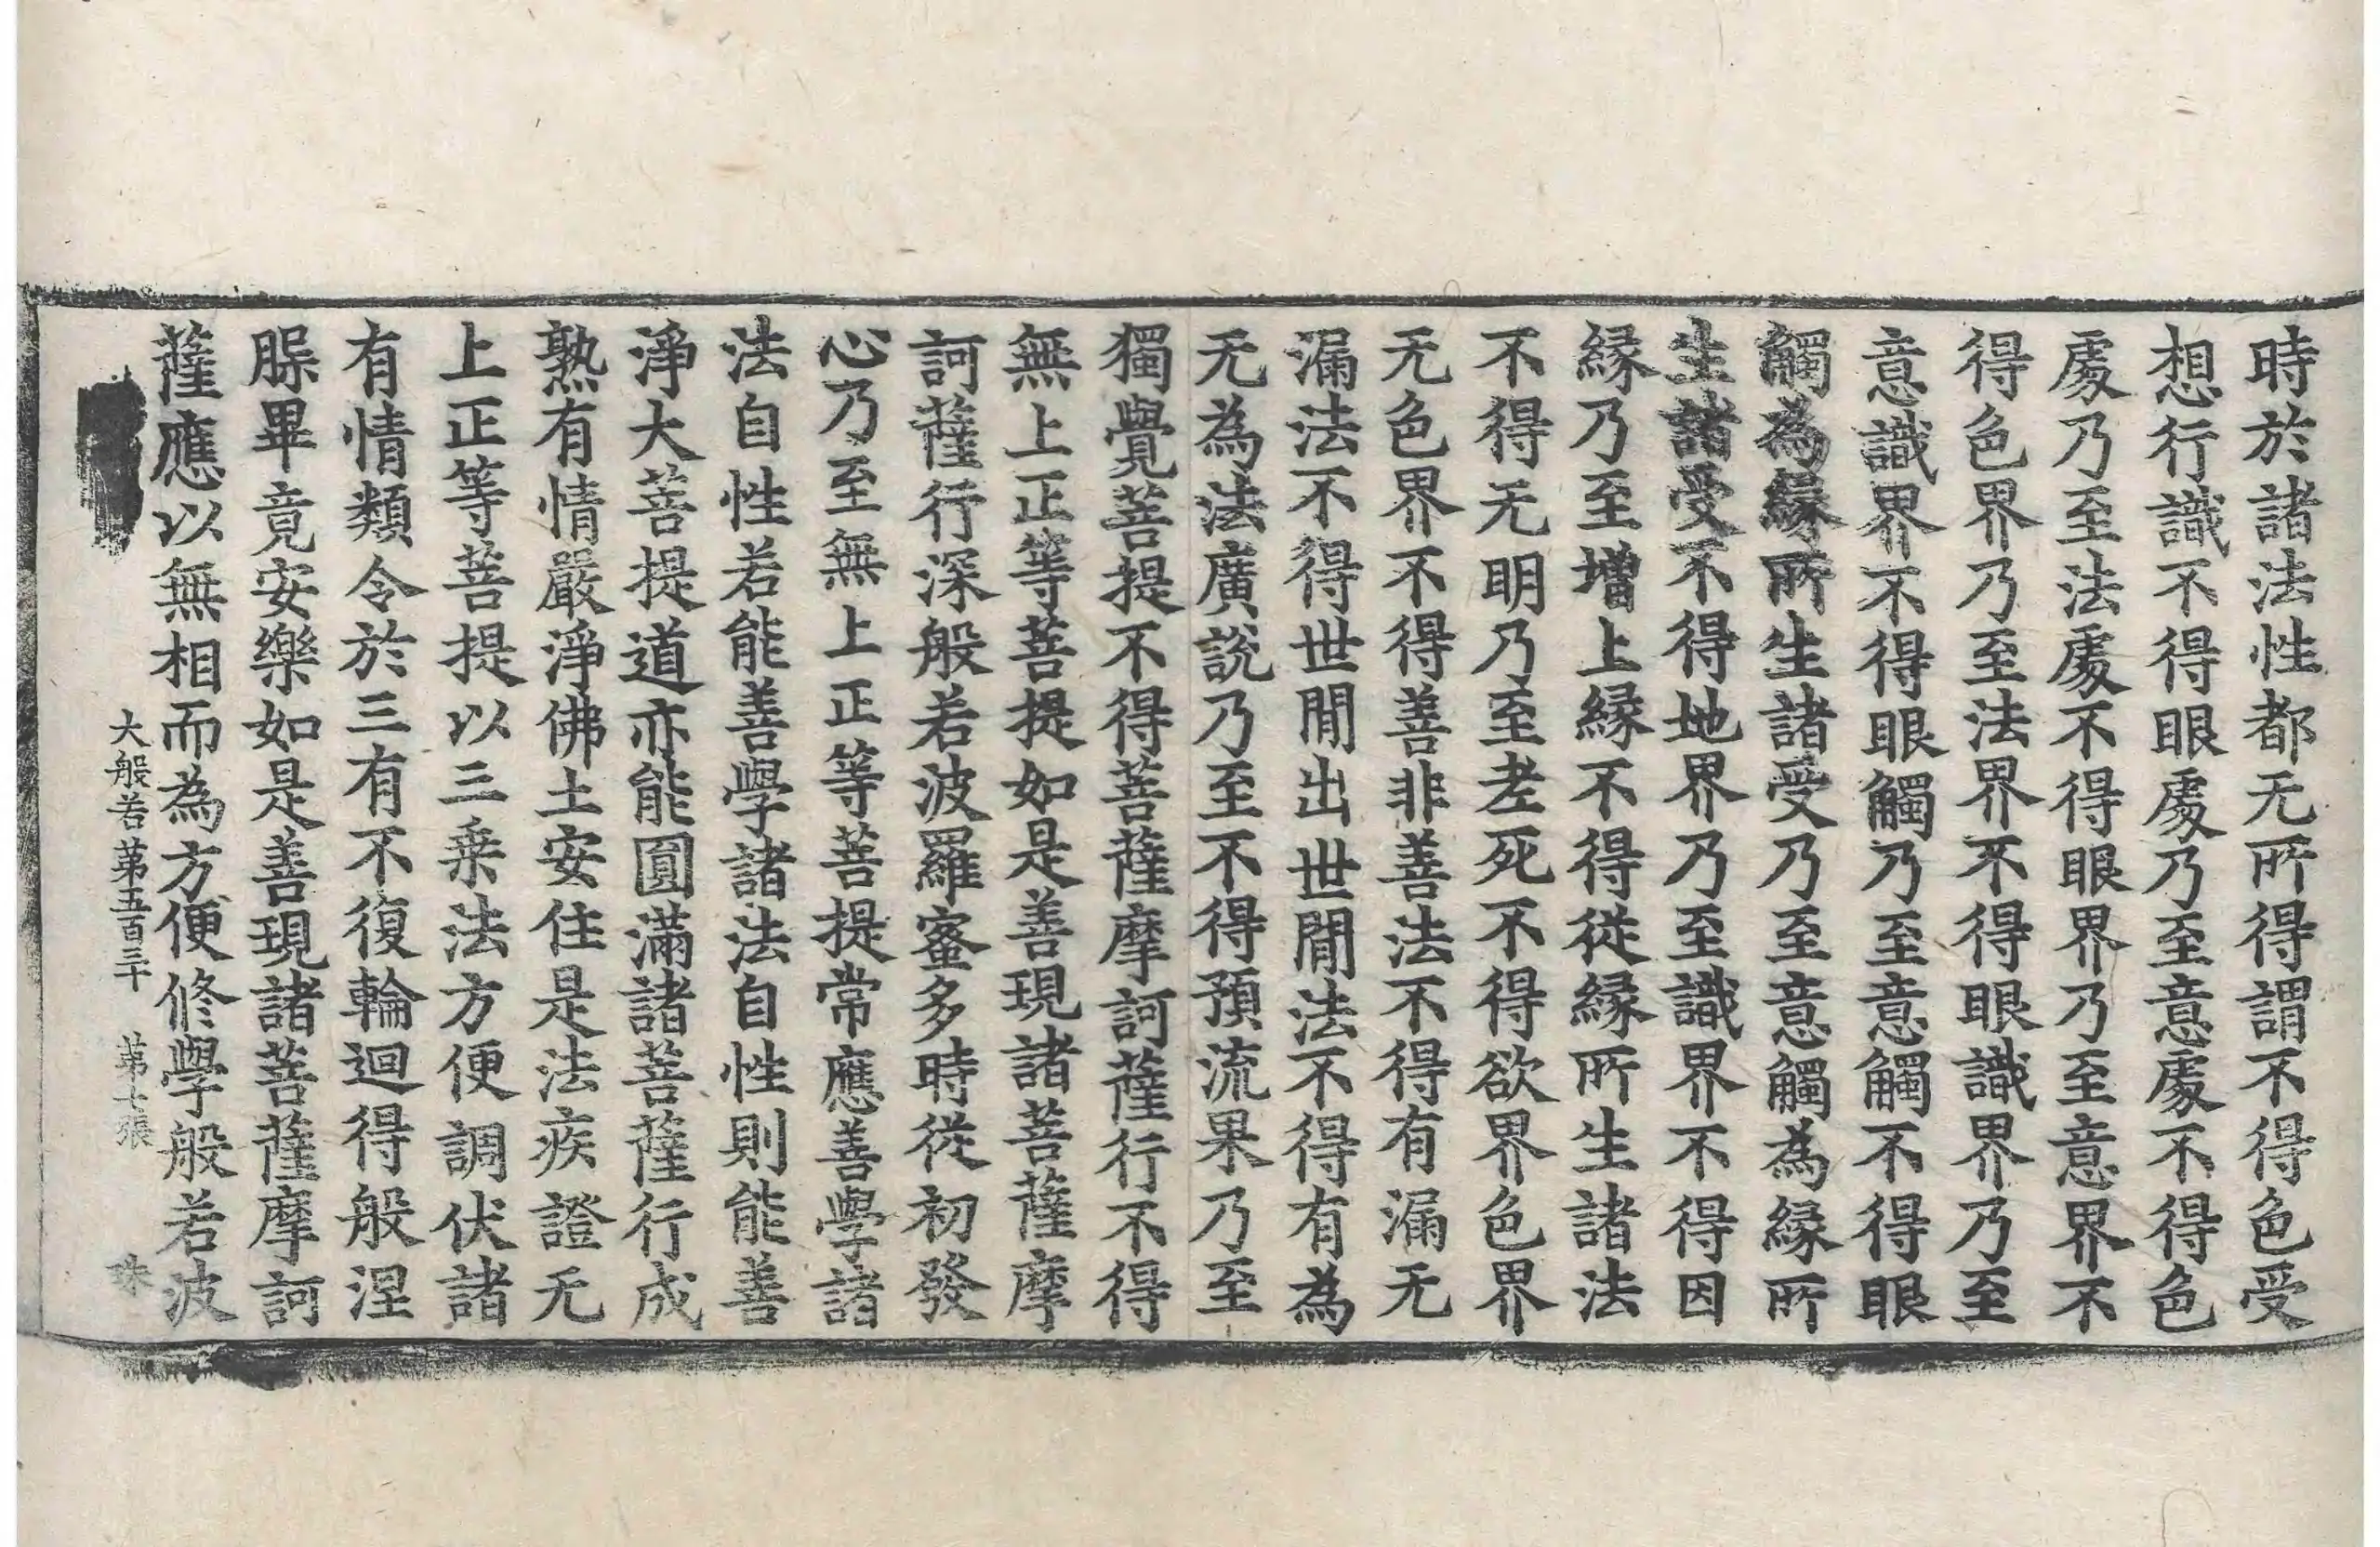 時於諸法性都无所得謂不得色受
想行識不得眼處乃至意處不得色
處乃至法處不得眼界乃至意界不
得色界乃至法界不得眼識界乃至
意識界不得眼觸乃至意觸不得眼
觸為緣所生諸受乃至意觸為緣所
生諸受不得地界乃至識界不得因
緣乃至增上緣不得從緣所生諸法
不得无明乃至老死不得欲界色界
无色界不得善非善法不得有漏无
漏法不得世間出世間法不得有為
无為法廣說乃至不得預流果乃至
獨覺菩提不得菩薩摩訶薩行不得
無上正等菩提如是善現諸菩薩摩
訶薩行深般若波羅蜜多時從初發
心乃至無上正等菩提常應善學諸
法自性若能善學諸法自性則能善
淨大菩提道亦能圓滿諸菩薩行成
熟有情嚴淨佛土安住是法疾證无
上正等菩提以三乘法方便調伏諸
有情類令於三有不復輪迴得般涅
腺畢竟安樂如是善現諸菩薩摩訶
薩應以無相而為方便修學般若波
大般若第五百三十 第七張 珠